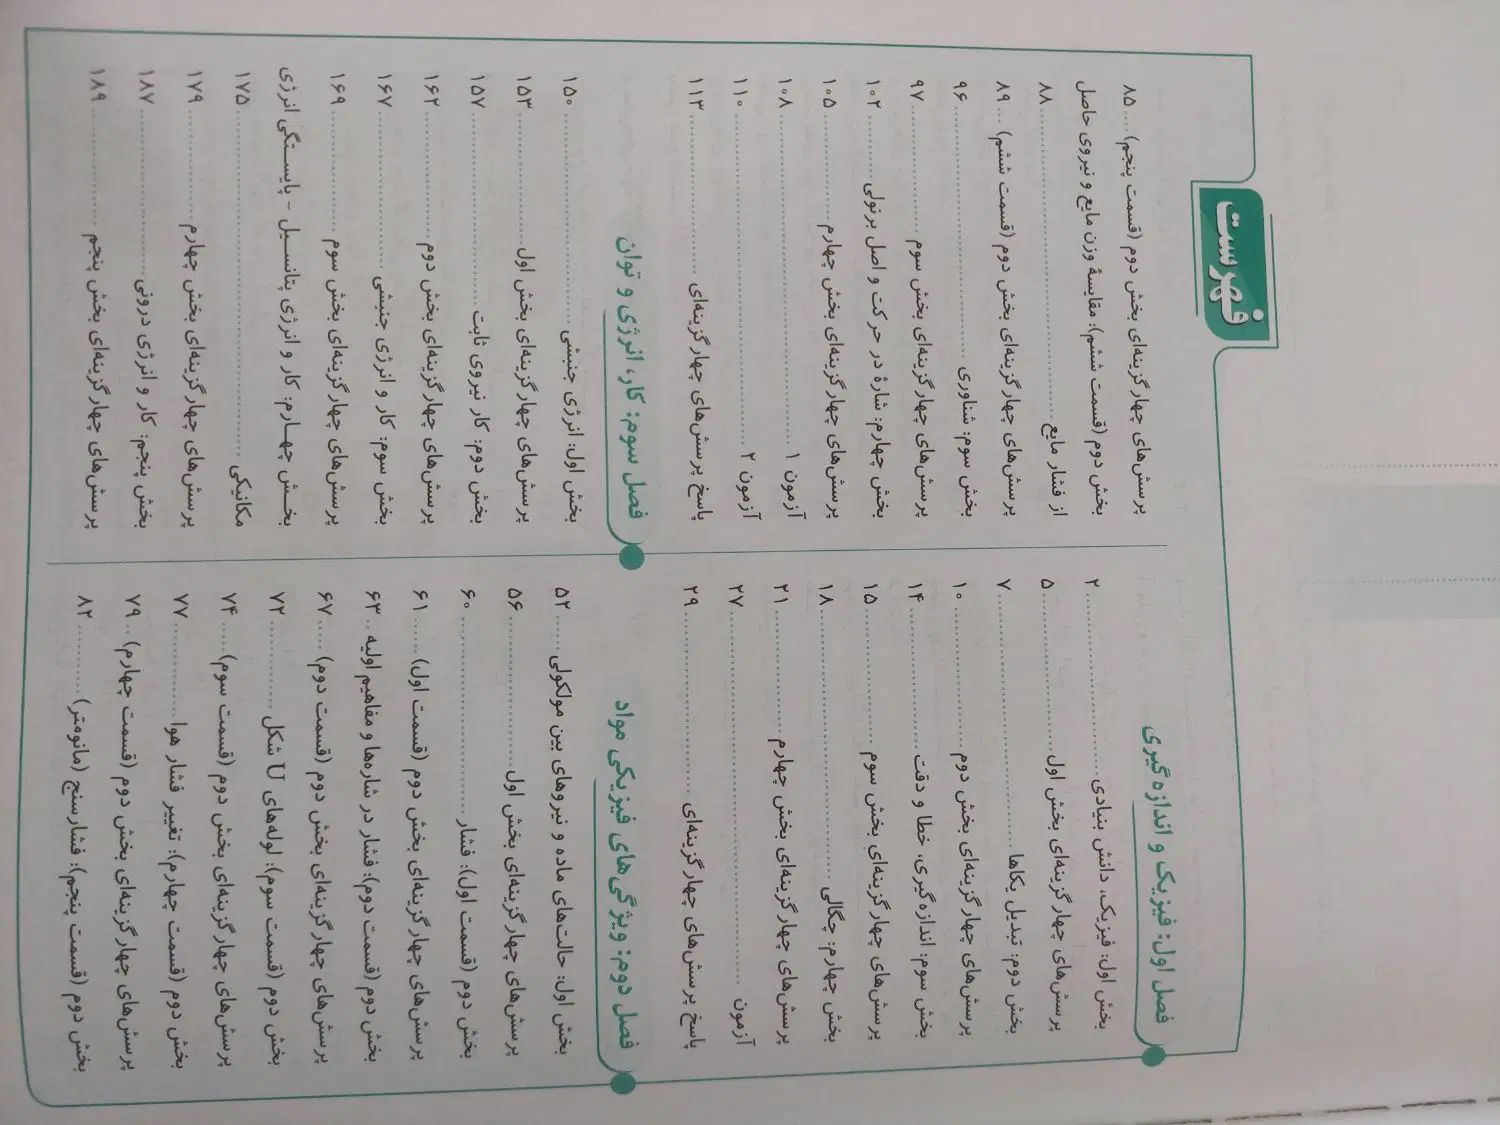 فهرست
فصل اول: فیزیک و اندازه‌گیری
بخش اول: فیزیک، دانش بنیادی ........ ۲
پرسش‌های چهارگزینه‌ای بخش اول ........ ۵
بخش دوم: تبدیل یکاها ........ ۷
پرسش‌های چهارگزینه‌ای بخش دوم ........ ۱۰
بخش سوم: اندازه‌گیری، خطا و دقت ........ ۱۴
پرسش‌های چهارگزینه‌ای بخش سوم ........ ۱۵
بخش چهارم: چگالی ........ ۱۸
پرسش‌های چهارگزینه‌ای بخش چهارم ........ ۲۱
آزمون ........ ۲۷
پاسخ پرسش‌های چهارگزینه‌ای ........ ۲۹
فصل دوم: ویژگی‌های فیزیکی مواد
بخش اول: حالت‌های ماده و نیروهای بین مولکولی ..... ۵۲
پرسش‌های چهارگزینه‌ای بخش اول ........ ۵۶
بخش دوم (قسمت اول): فشار ........ ۶۰
پرسش‌های چهارگزینه‌ای بخش دوم (قسمت اول) ..... ۶۱
بخش دوم (قسمت دوم): فشار در شاره‌ها و مفاهیم اولیه .. ۶۳
پرسش‌های چهارگزینه‌ای بخش دوم (قسمت دوم) ..... ۶۷
بخش دوم (قسمت سوم): لوله‌های U شکل ........ ۷۲
پرسش‌های چهارگزینه‌ای بخش دوم (قسمت سوم) ..... ۷۴
بخش دوم (قسمت چهارم): تغییر فشار هوا ........ ۷۷
پرسش‌های چهارگزینه‌ای بخش دوم (قسمت چهارم) .. ۷۹
بخش دوم (قسمت پنجم): فشارسنج (مانومتر) ........ ۸۲
پرسش‌های چهارگزینه‌ای بخش دوم (قسمت پنجم) ... ۸۵
بخش دوم (قسمت ششم): مقایسهٔ وزن مایع و نیروی حاصل
از فشار مایع ........ ۸۸
پرسش‌های چهارگزینه‌ای بخش دوم (قسمت ششم) ... ۸۹
بخش سوم: شناوری ........ ۹۶
پرسش‌های چهارگزینه‌ای بخش سوم ........ ۹۷
بخش چهارم: شارهٔ در حرکت و اصل برنولی ........ ۱۰۲
پرسش‌های چهارگزینه‌ای بخش چهارم ........ ۱۰۵
آزمون ۱ ........ ۱۰۸
آزمون ۲ ........ ۱۱۰
پاسخ پرسش‌های چهارگزینه‌ای ........ ۱۱۳
فصل سوم: کار، انرژی و توان
بخش اول: انرژی جنبشی ........ ۱۵۰
پرسش‌های چهارگزینه‌ای بخش اول ........ ۱۵۳
بخش دوم: کار نیروی ثابت ........ ۱۵۷
پرسش‌های چهارگزینه‌ای بخش دوم ........ ۱۶۲
بخش سوم: کار و انرژی جنبشی ........ ۱۶۷
پرسش‌های چهارگزینه‌ای بخش سوم ........ ۱۶۹
بخش چهارم: کار و انرژی پتانسیل - پایستگی انرژی
مکانیکی ........ ۱۷۵
پرسش‌های چهارگزینه‌ای بخش چهارم ........ ۱۷۹
بخش پنجم: کار و انرژی درونی ........ ۱۸۷
پرسش‌های چهارگزینه‌ای بخش پنجم ........ ۱۸۹